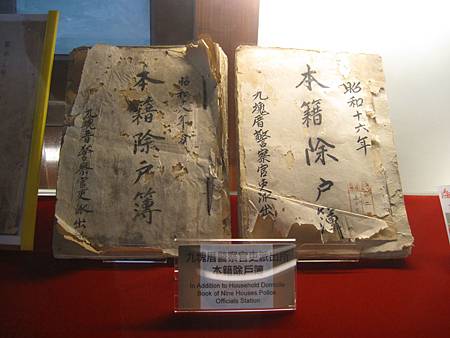 昭和八年
本籍除戶簿
九塊厝警察官吏派出
昭和十六年
本籍除戶簿
九塊厝警察官吏派出
九塊厝警察官吏派出所
本籍除戶簿
In Addition to Household Domicile
Book of Nine Houses Police
Officials Station